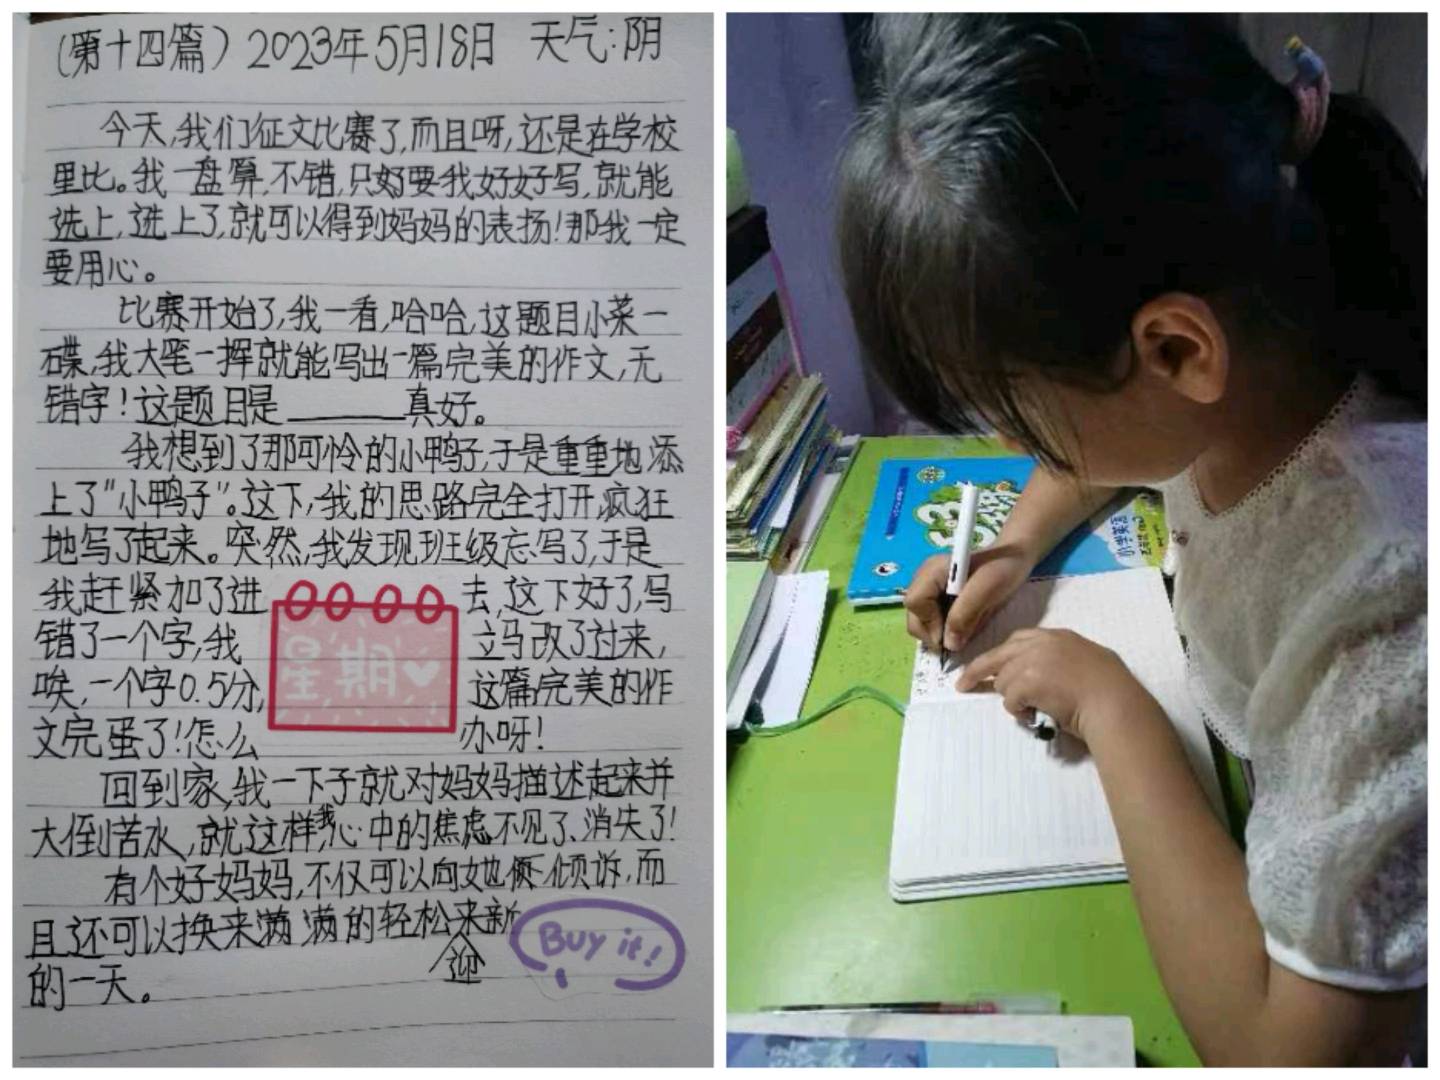 （第十四篇）2023年5月18日 天气：阴
今天，我们征文比赛了，而且呀，还是在学校
里比。我一盘算，不错，只好要我好好写，就能
选上，选上了，就可以得到妈妈的表扬！那我一定
要用心。
比赛开始了，我一看，哈哈，这题目小菜一
碟，我大笔一挥就能写出一篇完美的作文，无
错字！这题目是______真好。
我想到了那可怜的小鸭子，于是重重地添
上了“小鸭子”。这下，我的思路完全打开，疯狂
地写了起来。突然，我发现班级忘写了，于是
我赶紧加了进去，这下好了，写
错了一个字，我立马改了过来，
唉，一个字0.5分，这篇完美的作
文完蛋了！怎么办呀！
星期
回到家，我一下子就对妈妈描述起来并
大倒苦水，就这样，我心中的焦虑不见了、消失了！
有个好妈妈，不仅可以向她倾诉，而
且还可以换来满满的轻松来迎新
的一天。
Buy it!
53
小学英语